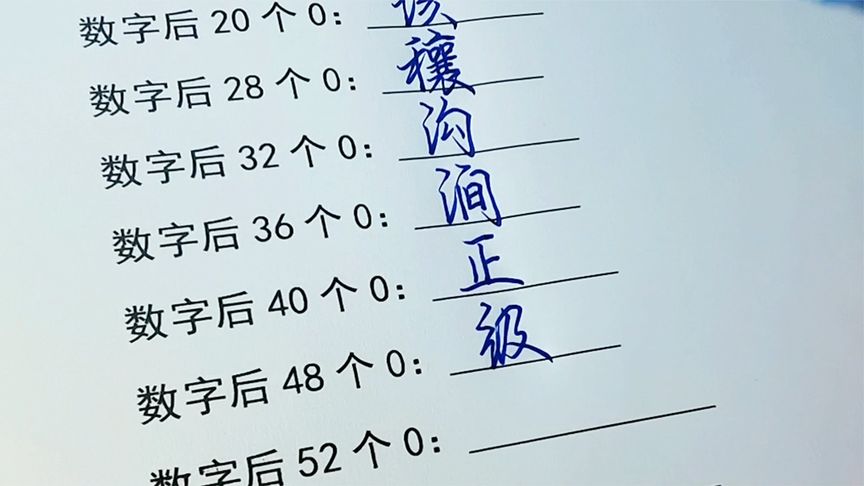 数字后 20 个 0：该
数字后 28 个 0：穰
数字后 32 个 0：沟
数字后 36 个 0：涧
数字后 40 个 0：正
数字后 48 个 0：极
数字后 52 个 0：